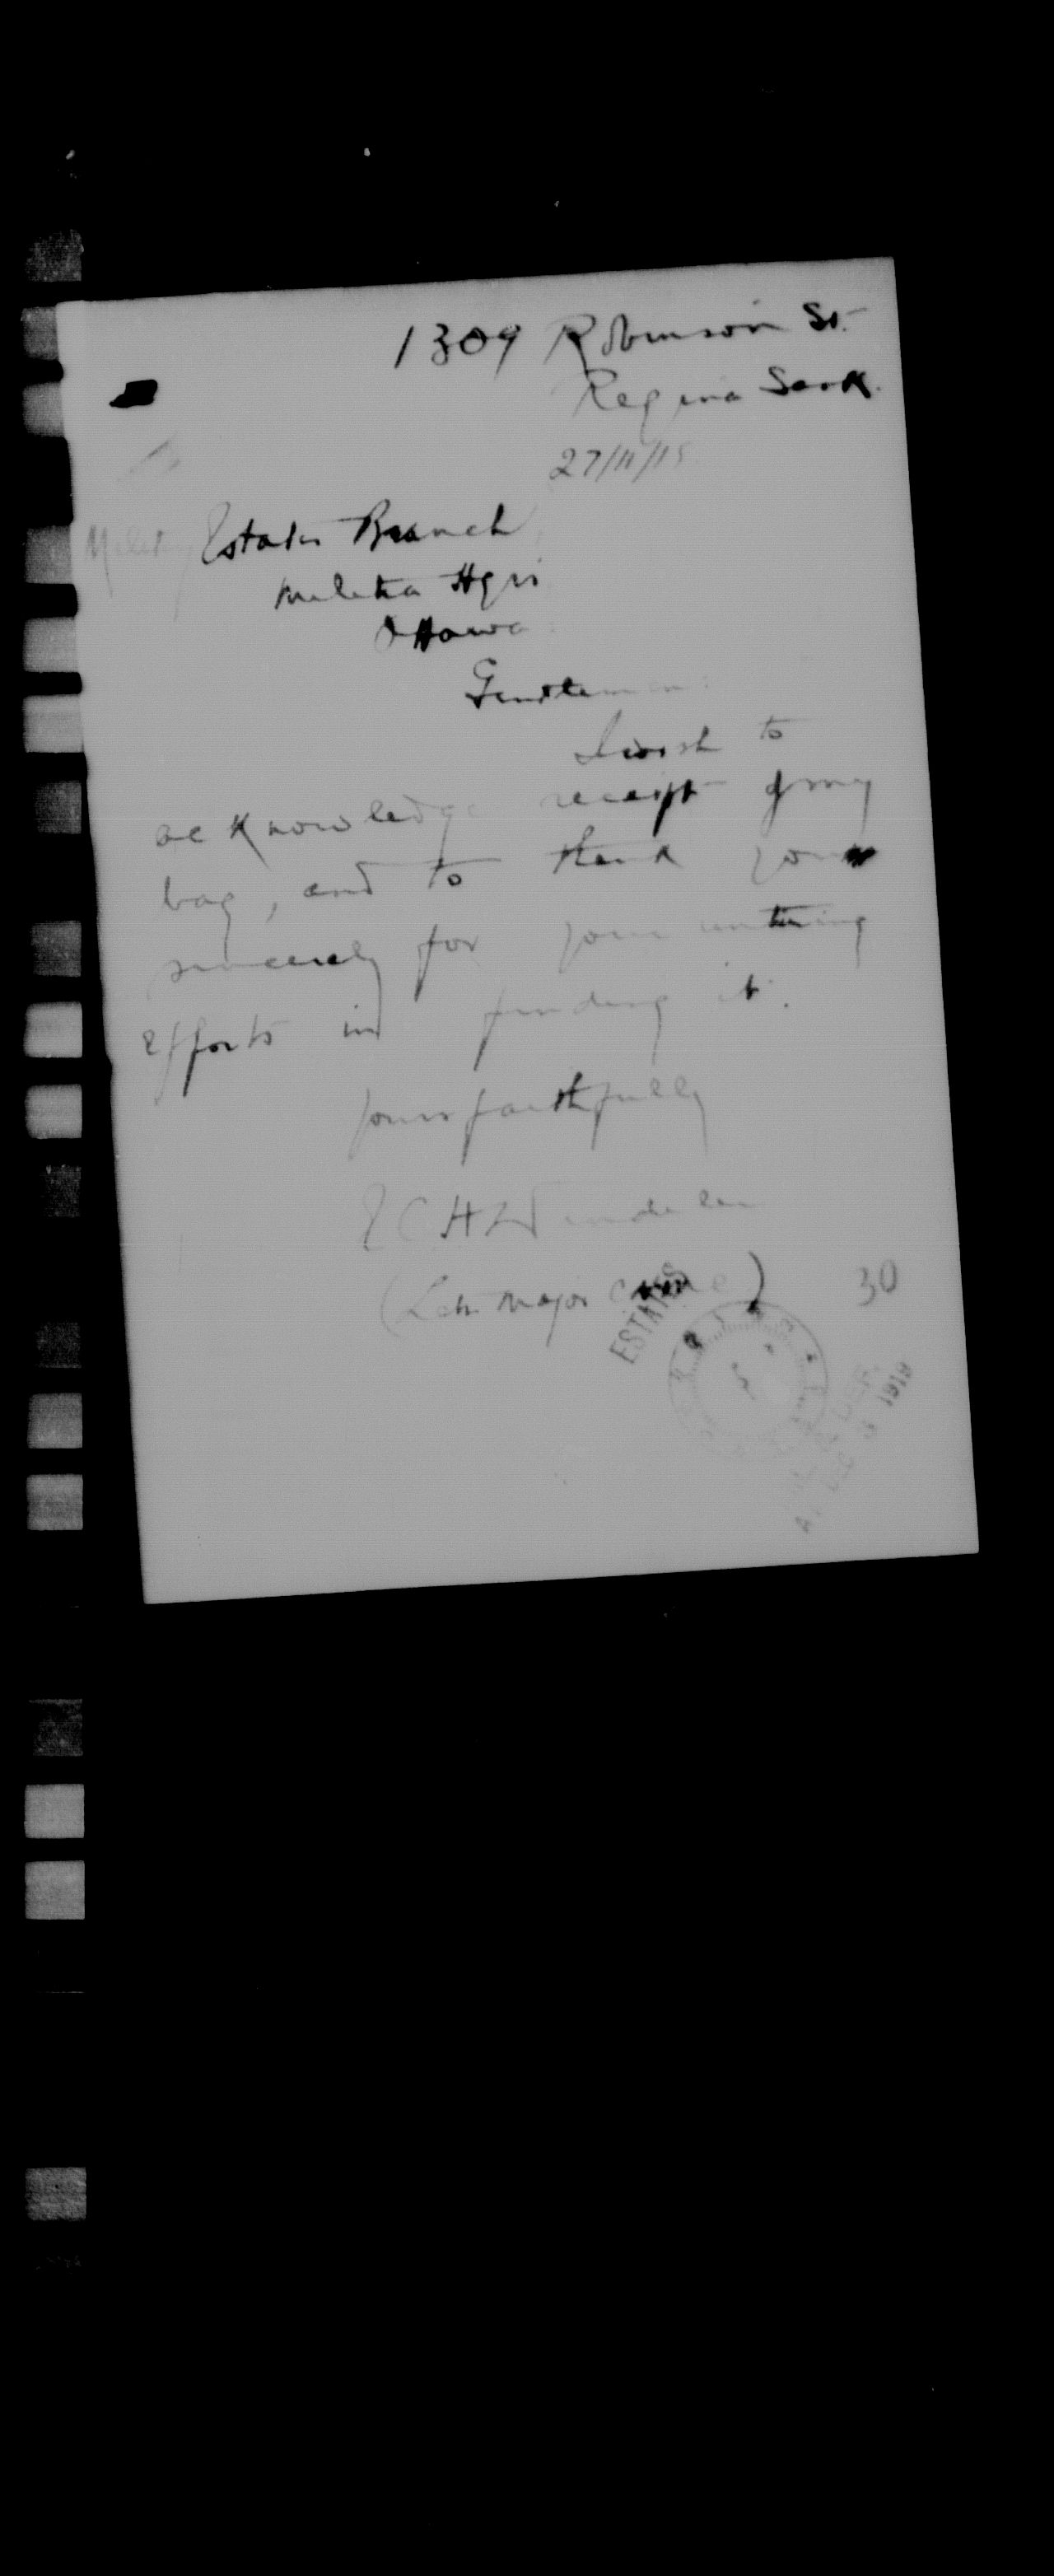 1309 Robinson St.
Regina Sask.
27/11/15
Military Estates Branch
Militia Hqrs
Ottawa
Gentlemen:
I wish to
acknowledge receipt of my
bag, and to thank you
sincerely for your untiring
efforts in finding it.
Yours faithfully
(Late Major
30
ESTATES
1919